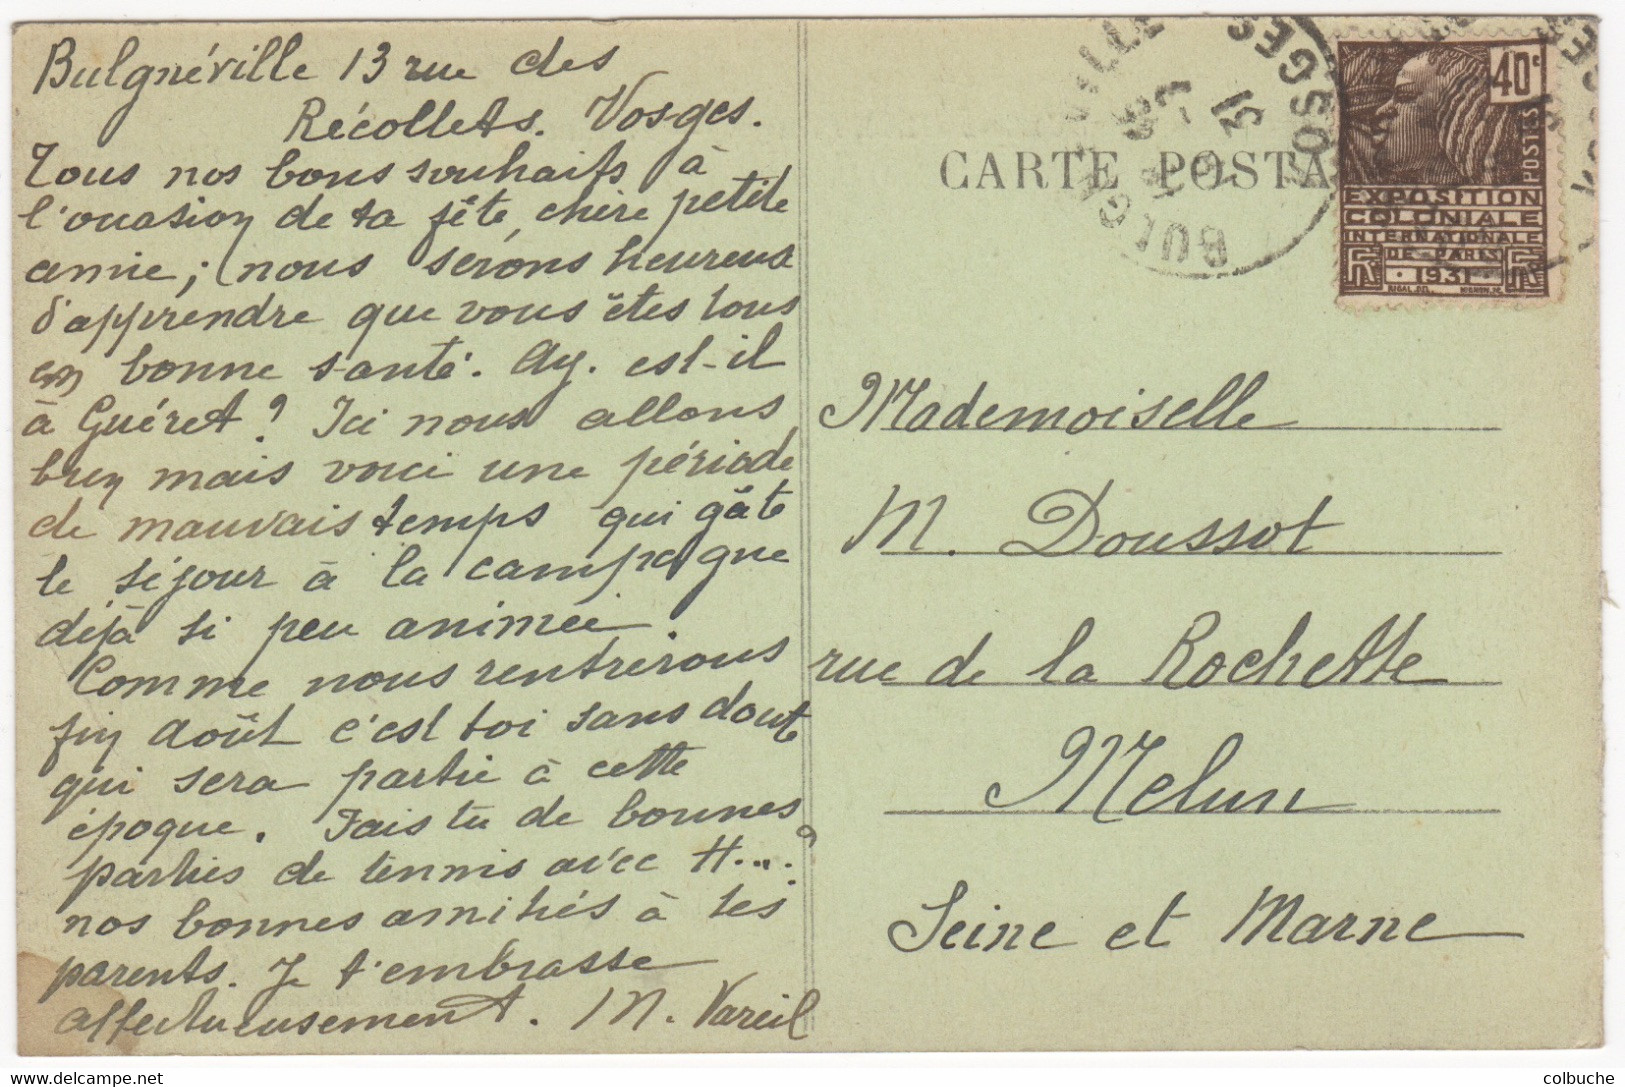 Bulgnéville 13 rue des
Récollets. Vosges.
Tous nos bons souhaits à
l'occasion de ta fête, chère petite
amie; nous serons heureux
d'apprendre que vous êtes tous
en bonne santé. Ay. est-il
à Guéret? Ici nous allons
bien mais voici une période
de mauvais temps qui gâte
le séjour à la campagne
déjà si peu animée.
Comme nous rentrerons
fin Août c'est toi sans doute
qui sera partie à cette
époque. Fais tu de bonnes
parties de tennis avec H....?
nos bonnes amitiés à tes
parents. Je t'embrasse
affectueusement. M. Vareil
CARTE POSTA
BULGNÉVILLE
VOSGES
31
40c
POSTES
EXPOSITION
COLONIALE
INTERNATIONALE
DE PARIS
1931
RF
Mademoiselle
M. Doussot
rue de la Rochette
Melun
Seine et Marne
www.delcampe.net
colbuche